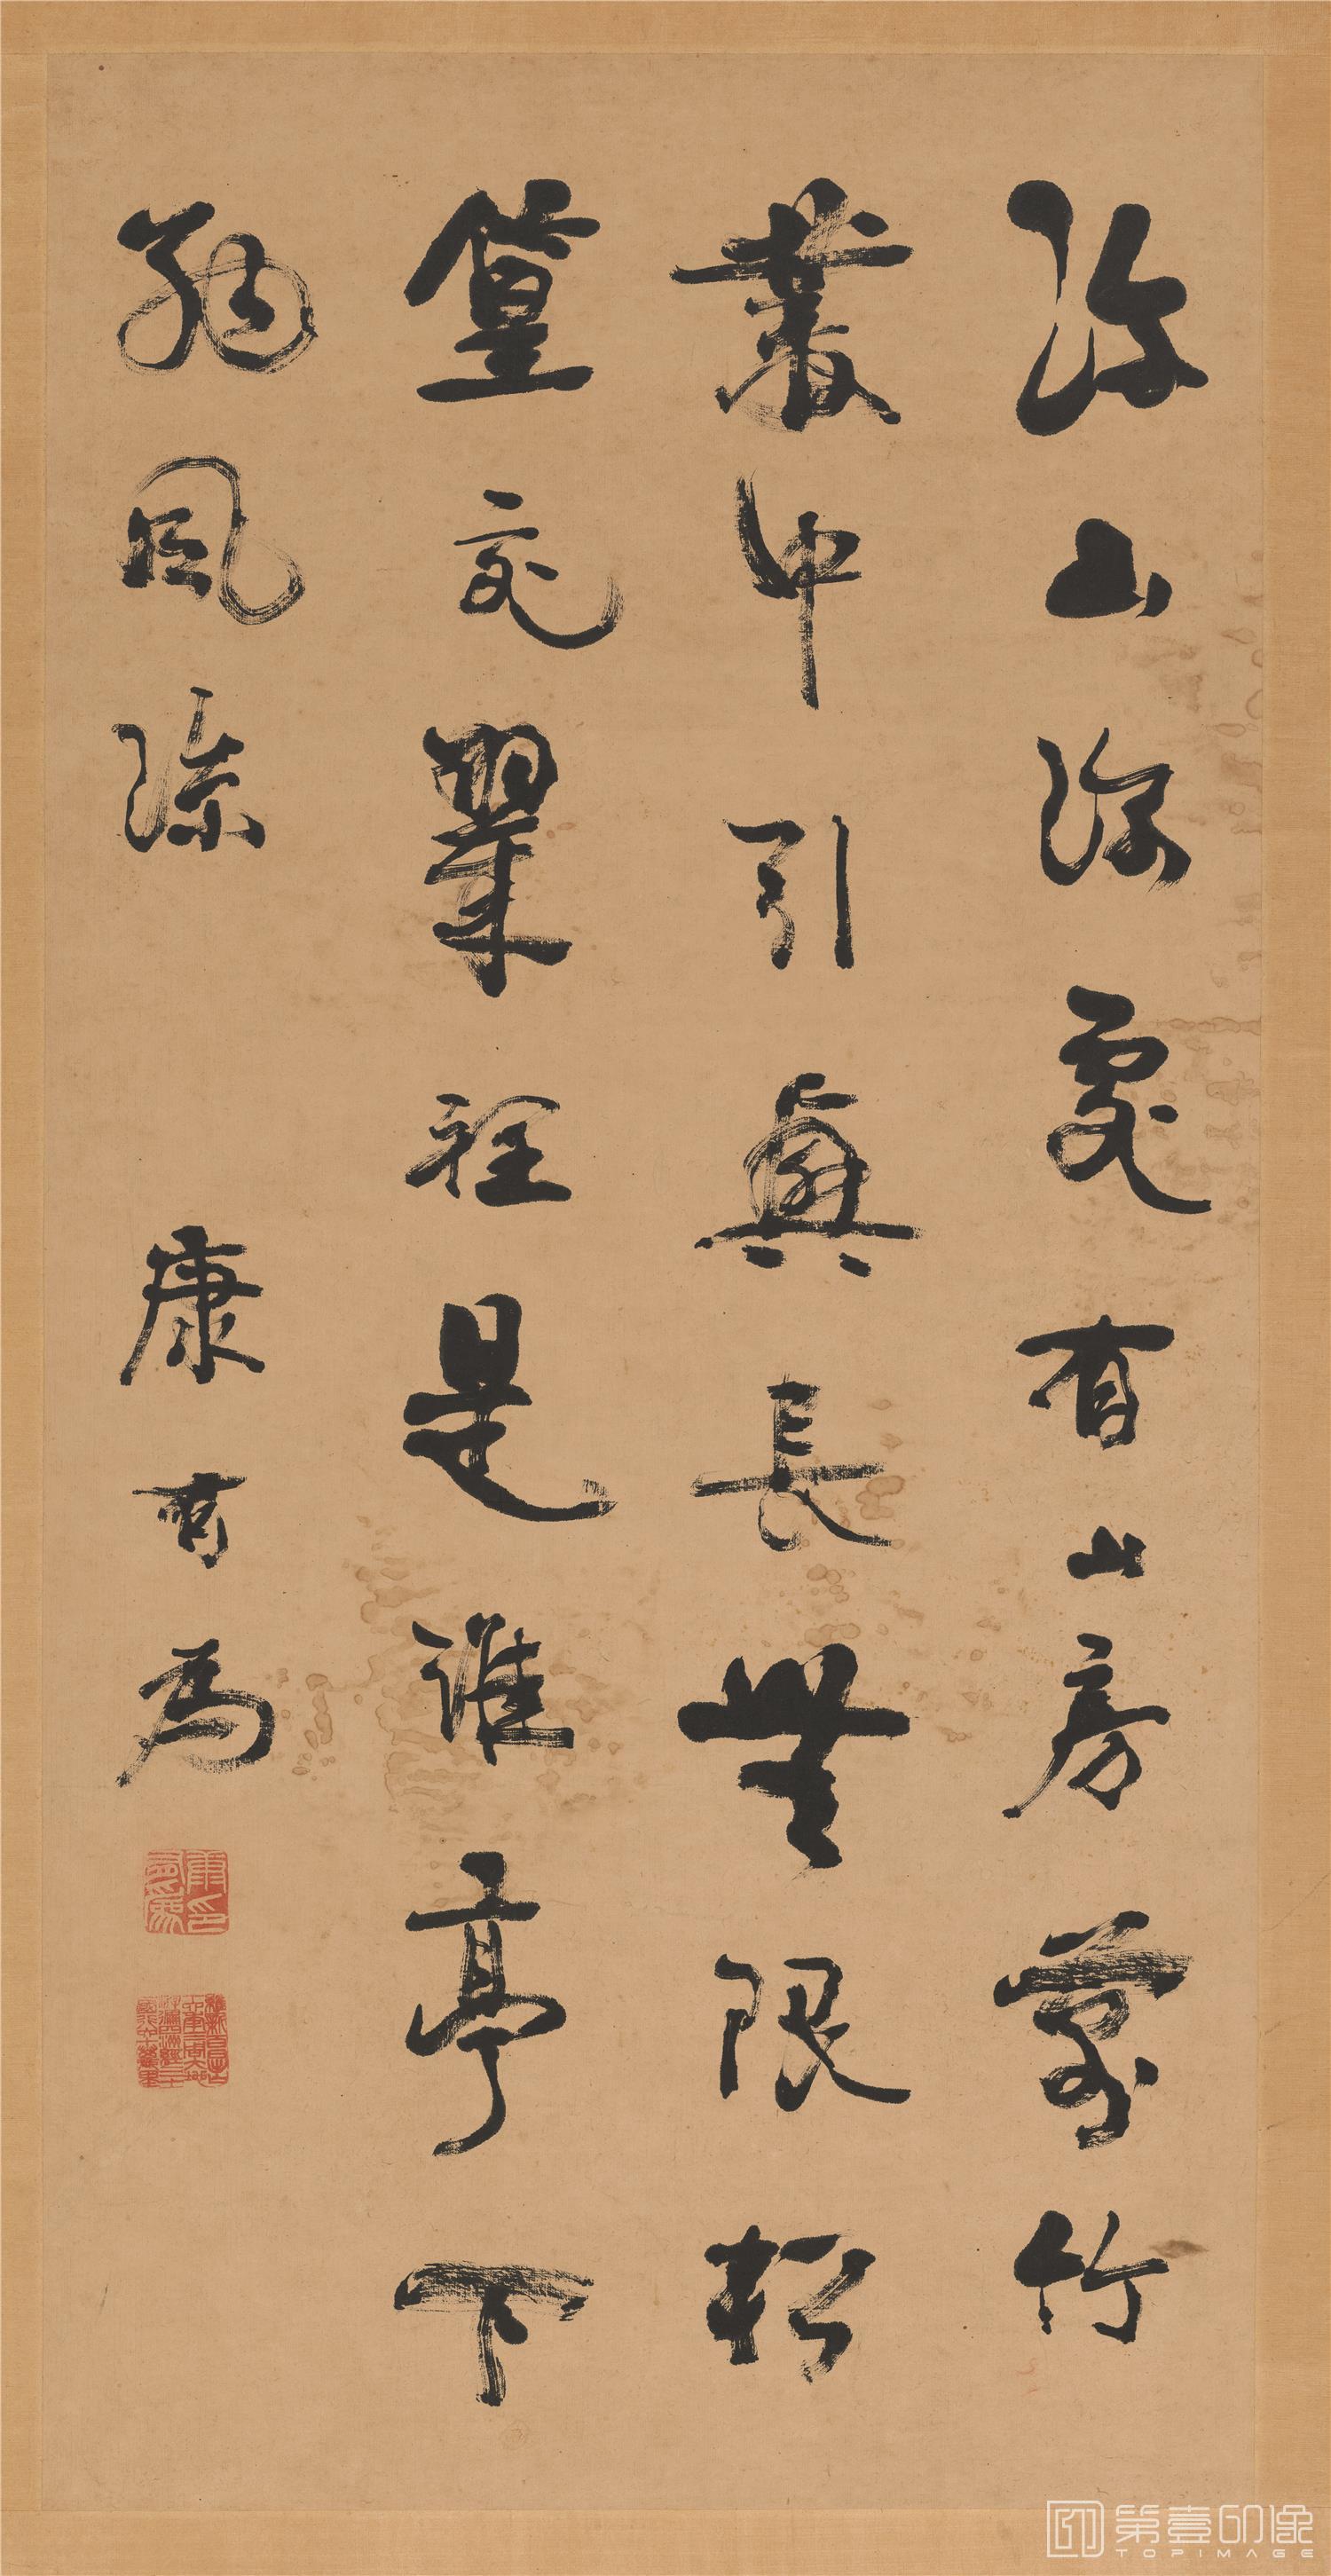 深山深處有山房萬竹
叢中引興長無限松
篁交翠裡是誰亭下
納風涼
康有為
康印
有為
第壹印像
TOPIMAGE